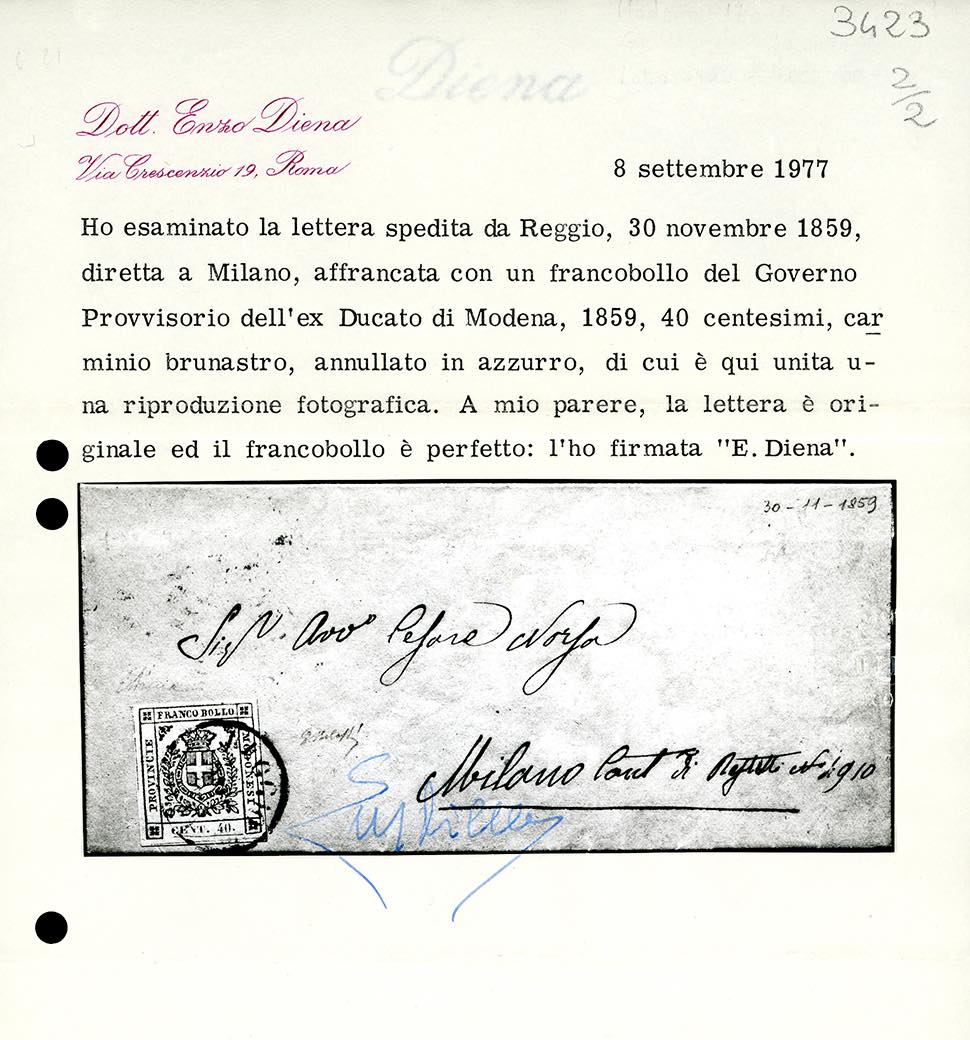 3423
2/2
Diena
Dott. Enzo Diena
Via Crescenzio 19, Roma
8 settembre 1977
Ho esaminato la lettera spedita da Reggio, 30 novembre 1859,
diretta a Milano, affrancata con un francobollo del Governo
Provvisorio dell'ex Ducato di Modena, 1859, 40 centesimi, car
minio brunastro, annullato in azzurro, di cui è qui unita u-
na riproduzione fotografica. A mio parere, la lettera è ori-
ginale ed il francobollo è perfetto: l'ho firmata "E. Diena".
30-11-1859
Sigr. Avvo Cesare Norsa
FRANCO BOLLO
PROVINCIE
MODONESI
CENT. 40.
Milano Cont di No 910